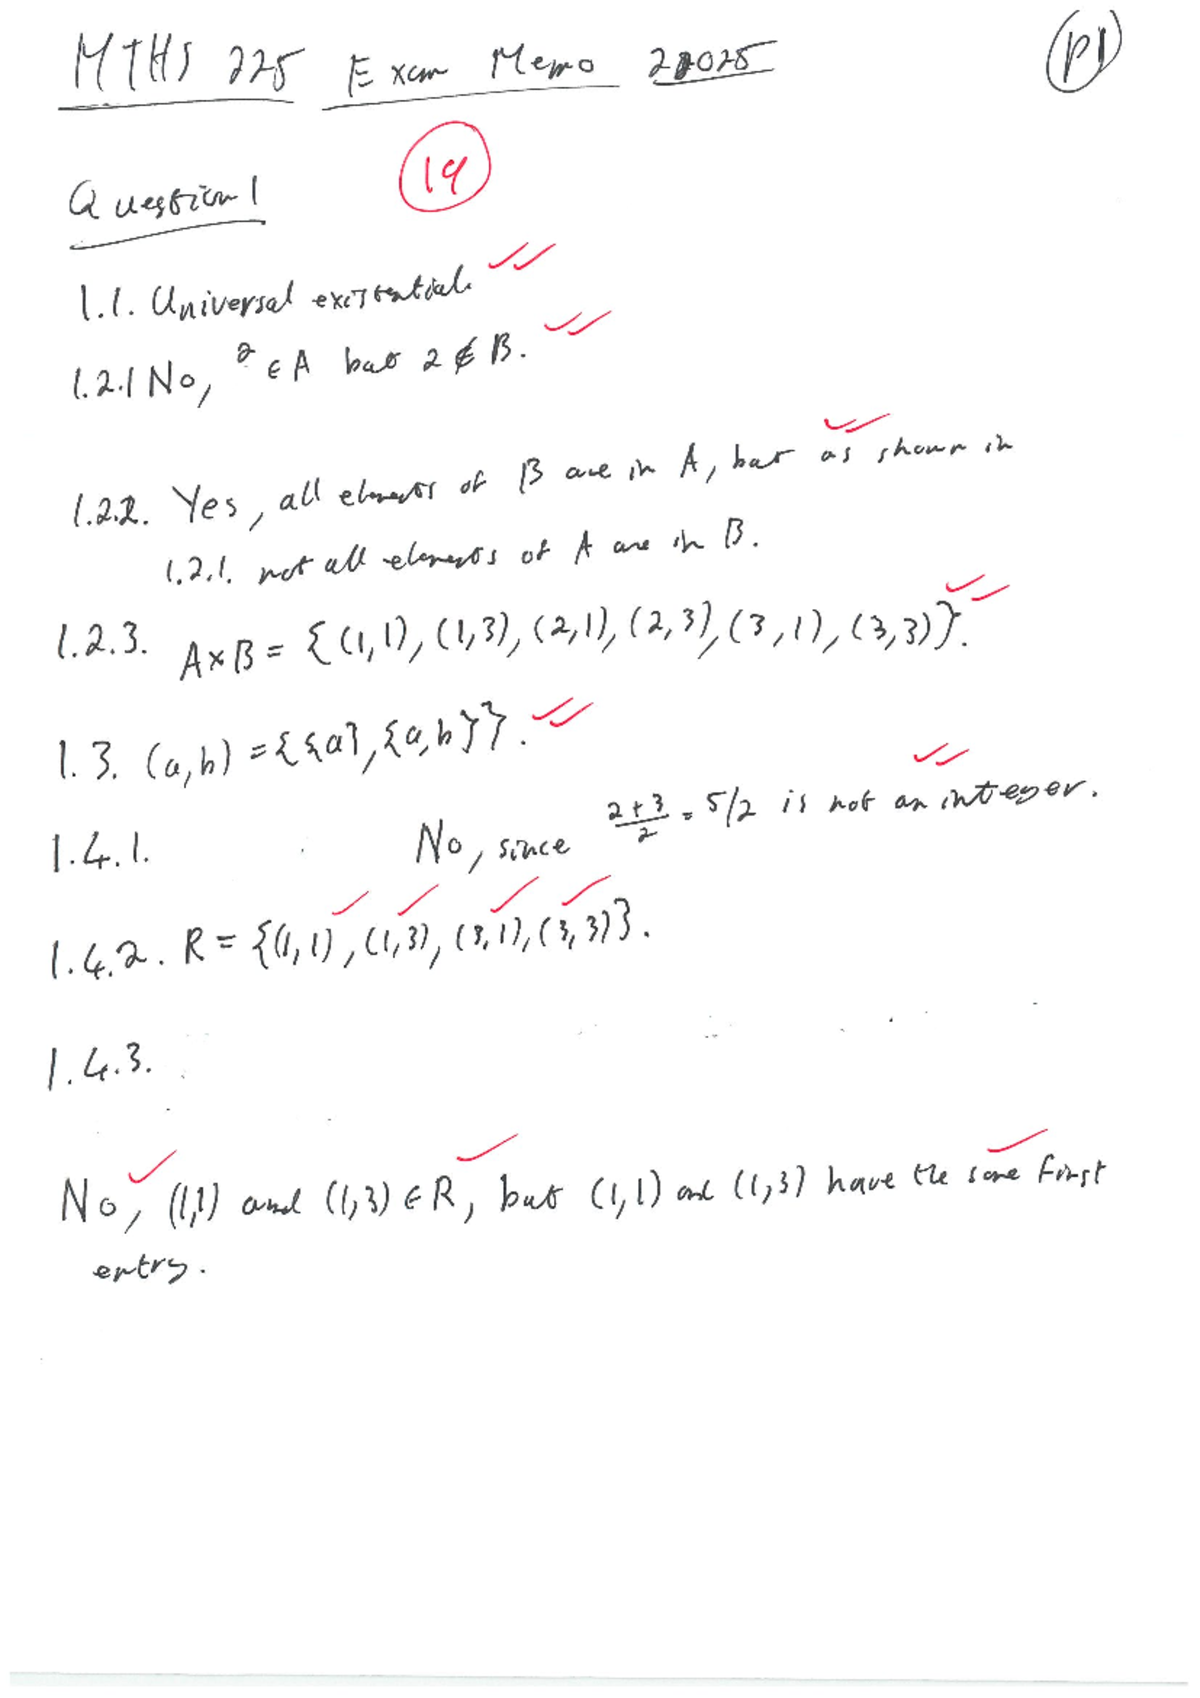 MTHS 225 Exam Memo 2025
P1
19
Question 1
1.1. Universal existential.
1.2.1 No, 2 ∈ A but 2 ∉ B.
1.2.2. Yes, all elements of B are in A, but as shown in
1.2.1. not all elements of A are in B.
1.2.3. A×B = {(1,1), (1,3), (2,1), (2,3), (3,1), (3,3)}.
1.3. (a,b) = {{a},{a,b}}.
1.4.1. No, since (2+3)/2 = 5/2 is not an integer.
1.4.2. R = {(1,1), (1,3), (3,1), (3,3)}.
1.4.3.
No, (1,1) and (1,3) ∈ R, but (1,1) and (1,3) have the same first
entry.